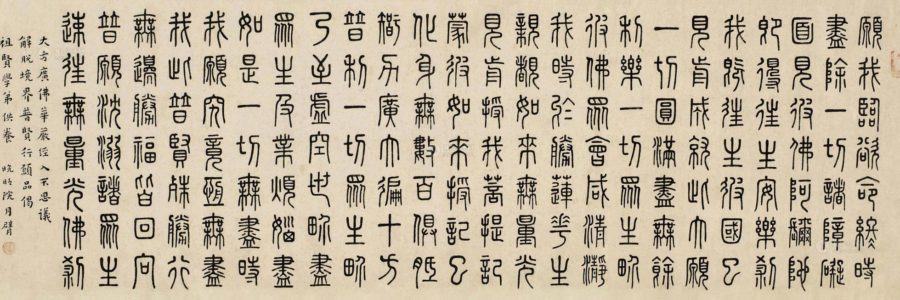 願我臨欲命終時
盡除一切諸障礙
面見彼佛阿彌陀
即得往生安樂剎
我既往生彼國已
見前成就此大願
一切圓滿盡無餘
利樂一切眾生界
彼佛眾會咸清淨
我時於勝蓮華生
親覩如來無量光
見前授我菩提記
蒙彼如來授記已
化身無數百俱胝
智力廣大遍十方
普利一切眾生界
乃至虛空世界盡
眾生及業煩惱盡
如是一切無盡時
我願究竟恆無盡
我此普賢殊勝行
無邊勝福皆回向
普願沈溺諸眾生
速往無量光佛剎
大方廣佛華嚴經入不思議
解脫境界普賢行願品偈
祖賢學弟供養 晚晴院月臂